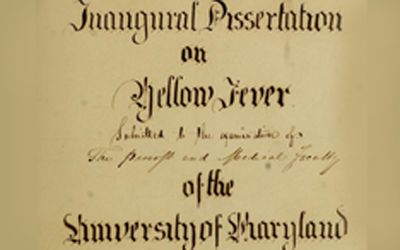 Inaugural Dissertation
on
Yellow Fever
Submitted to the examination of
The Provost and Medical Faculty
of the
University of Maryland